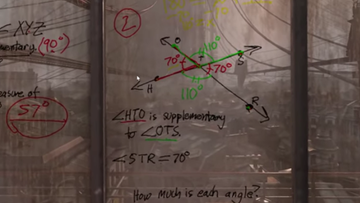 < XYZ
mentary. (90°)
measure of
57°
2
O
110°
70°
T
S
70°
H
110°
R
<HTO is supplementary
to <OTS.
<STR = 70°
How much is each angle?